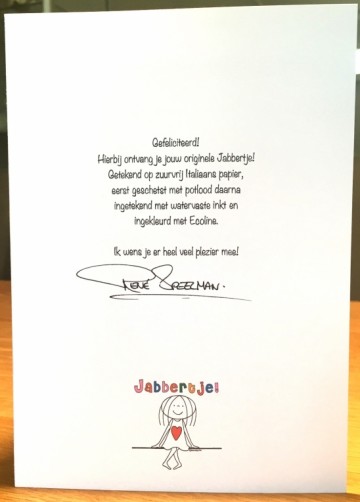 Gefeliciteerd!
Hierbij ontvang je jouw originele Jabbertje!
Getekend op zuurvrij Italiaans papier,
eerst geschetst met potlood daarna
ingetekend met watervaste inkt en
ingekleurd met Ecoline.
Ik wens je er heel veel plezier mee!
RENÉ SPEELMAN.
Jabbertje!